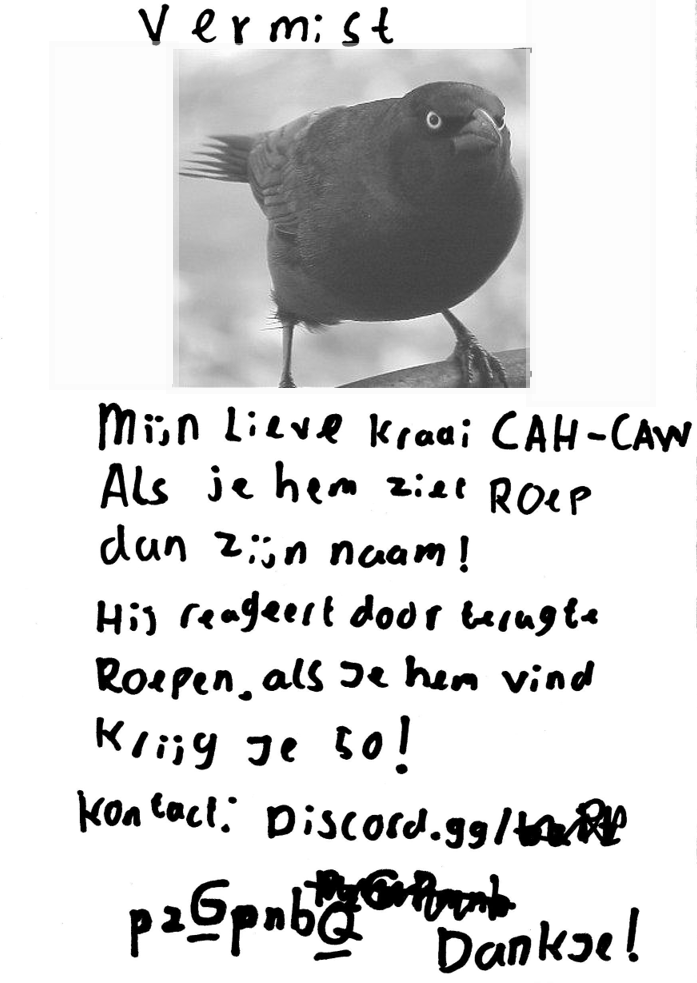 Vermist
Mijn Lieve kraai CAH-CAW
Als je hem ziet ROEP
dan zijn naam!
Hij reageert door terugte
Roepen. als Je hem vind
Krijg Je 50!
kontact: Discord.gg/
pzGpnbQ
Dankje!